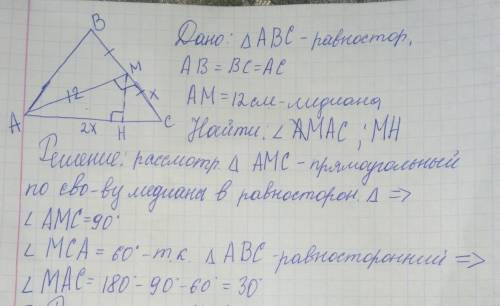 B
Дано: △ABC - равностор.
AB = BC = AC
M
12
x
AM = 12см - медиана
A
2x
H
C
Найти: ∠MAC; MH
Решение: рассмотр. △ AMC - прямоугольный
по сво-ву медианы в равносторон. △ =>
∠AMC = 90°
∠MCA = 60° - т.к. △ABC - равносторонний =>
∠MAC = 180° - 90° - 60° = 30°